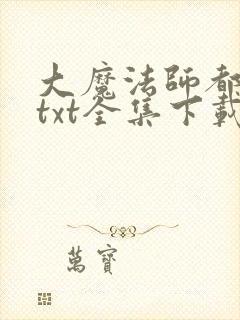 大魔法師都
txt全集下載
萬寶